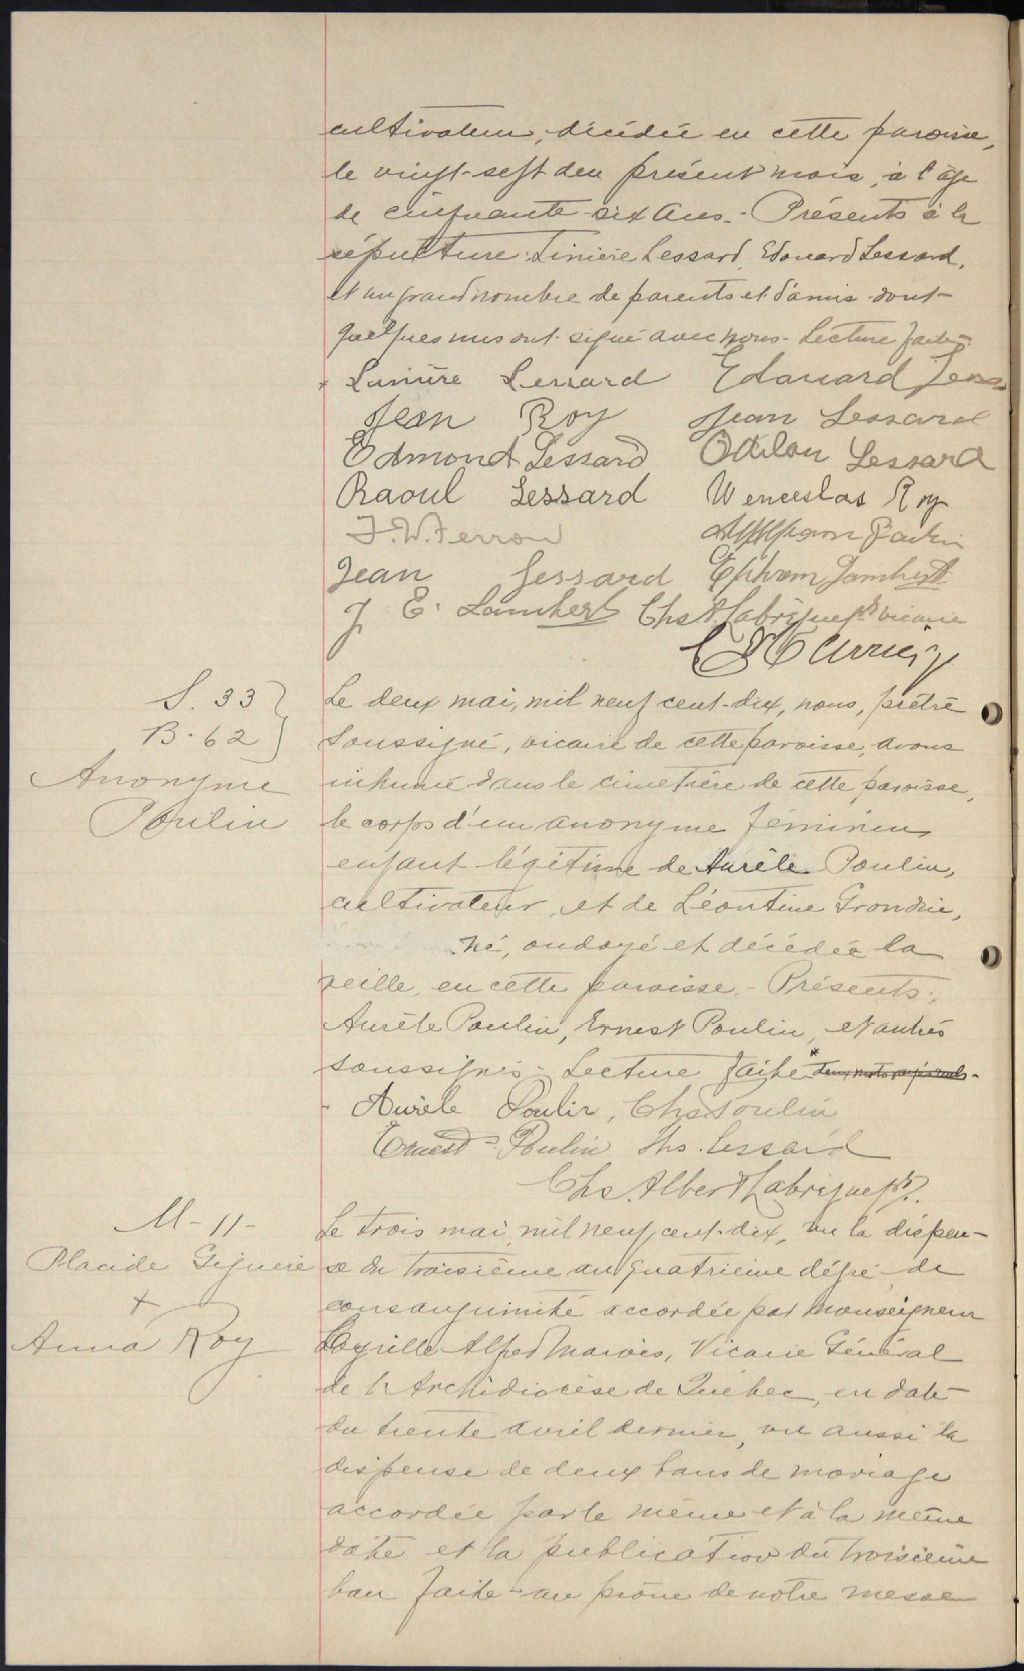 cultivateur, décédée en cette paroisse,
le vingt-sept du présent mois, à l'âge
de cinquante-six ans. - Présents à la
sépulture: Linière Lessard, Edouard Lessard,
et un grand nombre de parents et d'amis dont
quelques uns ont signé avec nous. Lecture faite.
Linière Lessard Edouard Less
Jean Roy Jean Lessard
Edmond Lessard Odilon Lessard
Raoul Lessard Wenceslas Roy
J. W. Ferron
Jean Lessard Ephrem Lambert
J. E. Lambert Chs A. Labrèque ptr vicaire
S. 33
B. 62
Anonyme
Poulin
Le deux mai, mil neuf cent-dix, nous, prêtre
soussigné, vicaire de cette paroisse, avons
inhumé dans le cimetière de cette paroisse,
le corps d'un anonyme féminin
enfant légitime de Aurèle Poulin,
cultivateur, et de Léontine Grondin,
né, ondoyé et décédée la
veille, en cette paroisse. - Présents:
Aurèle Poulin, Ernest Poulin, et autres
soussignés. Lecture faite
Aurèle Poulin, Chs Poulin
Ernest Poulin Ths. Lessard
Chs Albert Labrèque ptr.
M-11-
Placide Giguère
+
Anna Roy
Le trois mai, mil neuf cent-dix, vu la dispen-
se du troisième au quatrième degré de
consanguinité accordée par Monseigneur
Cyrille Alfred Marois, Vicaire Général
de l'Archidiocèse de Québec, en date
du trente avril dernier, vu aussi la
dispense de deux bans de mariage
accordée par le même et à la même
date et la publication du troisième
ban faite au prône de notre messe